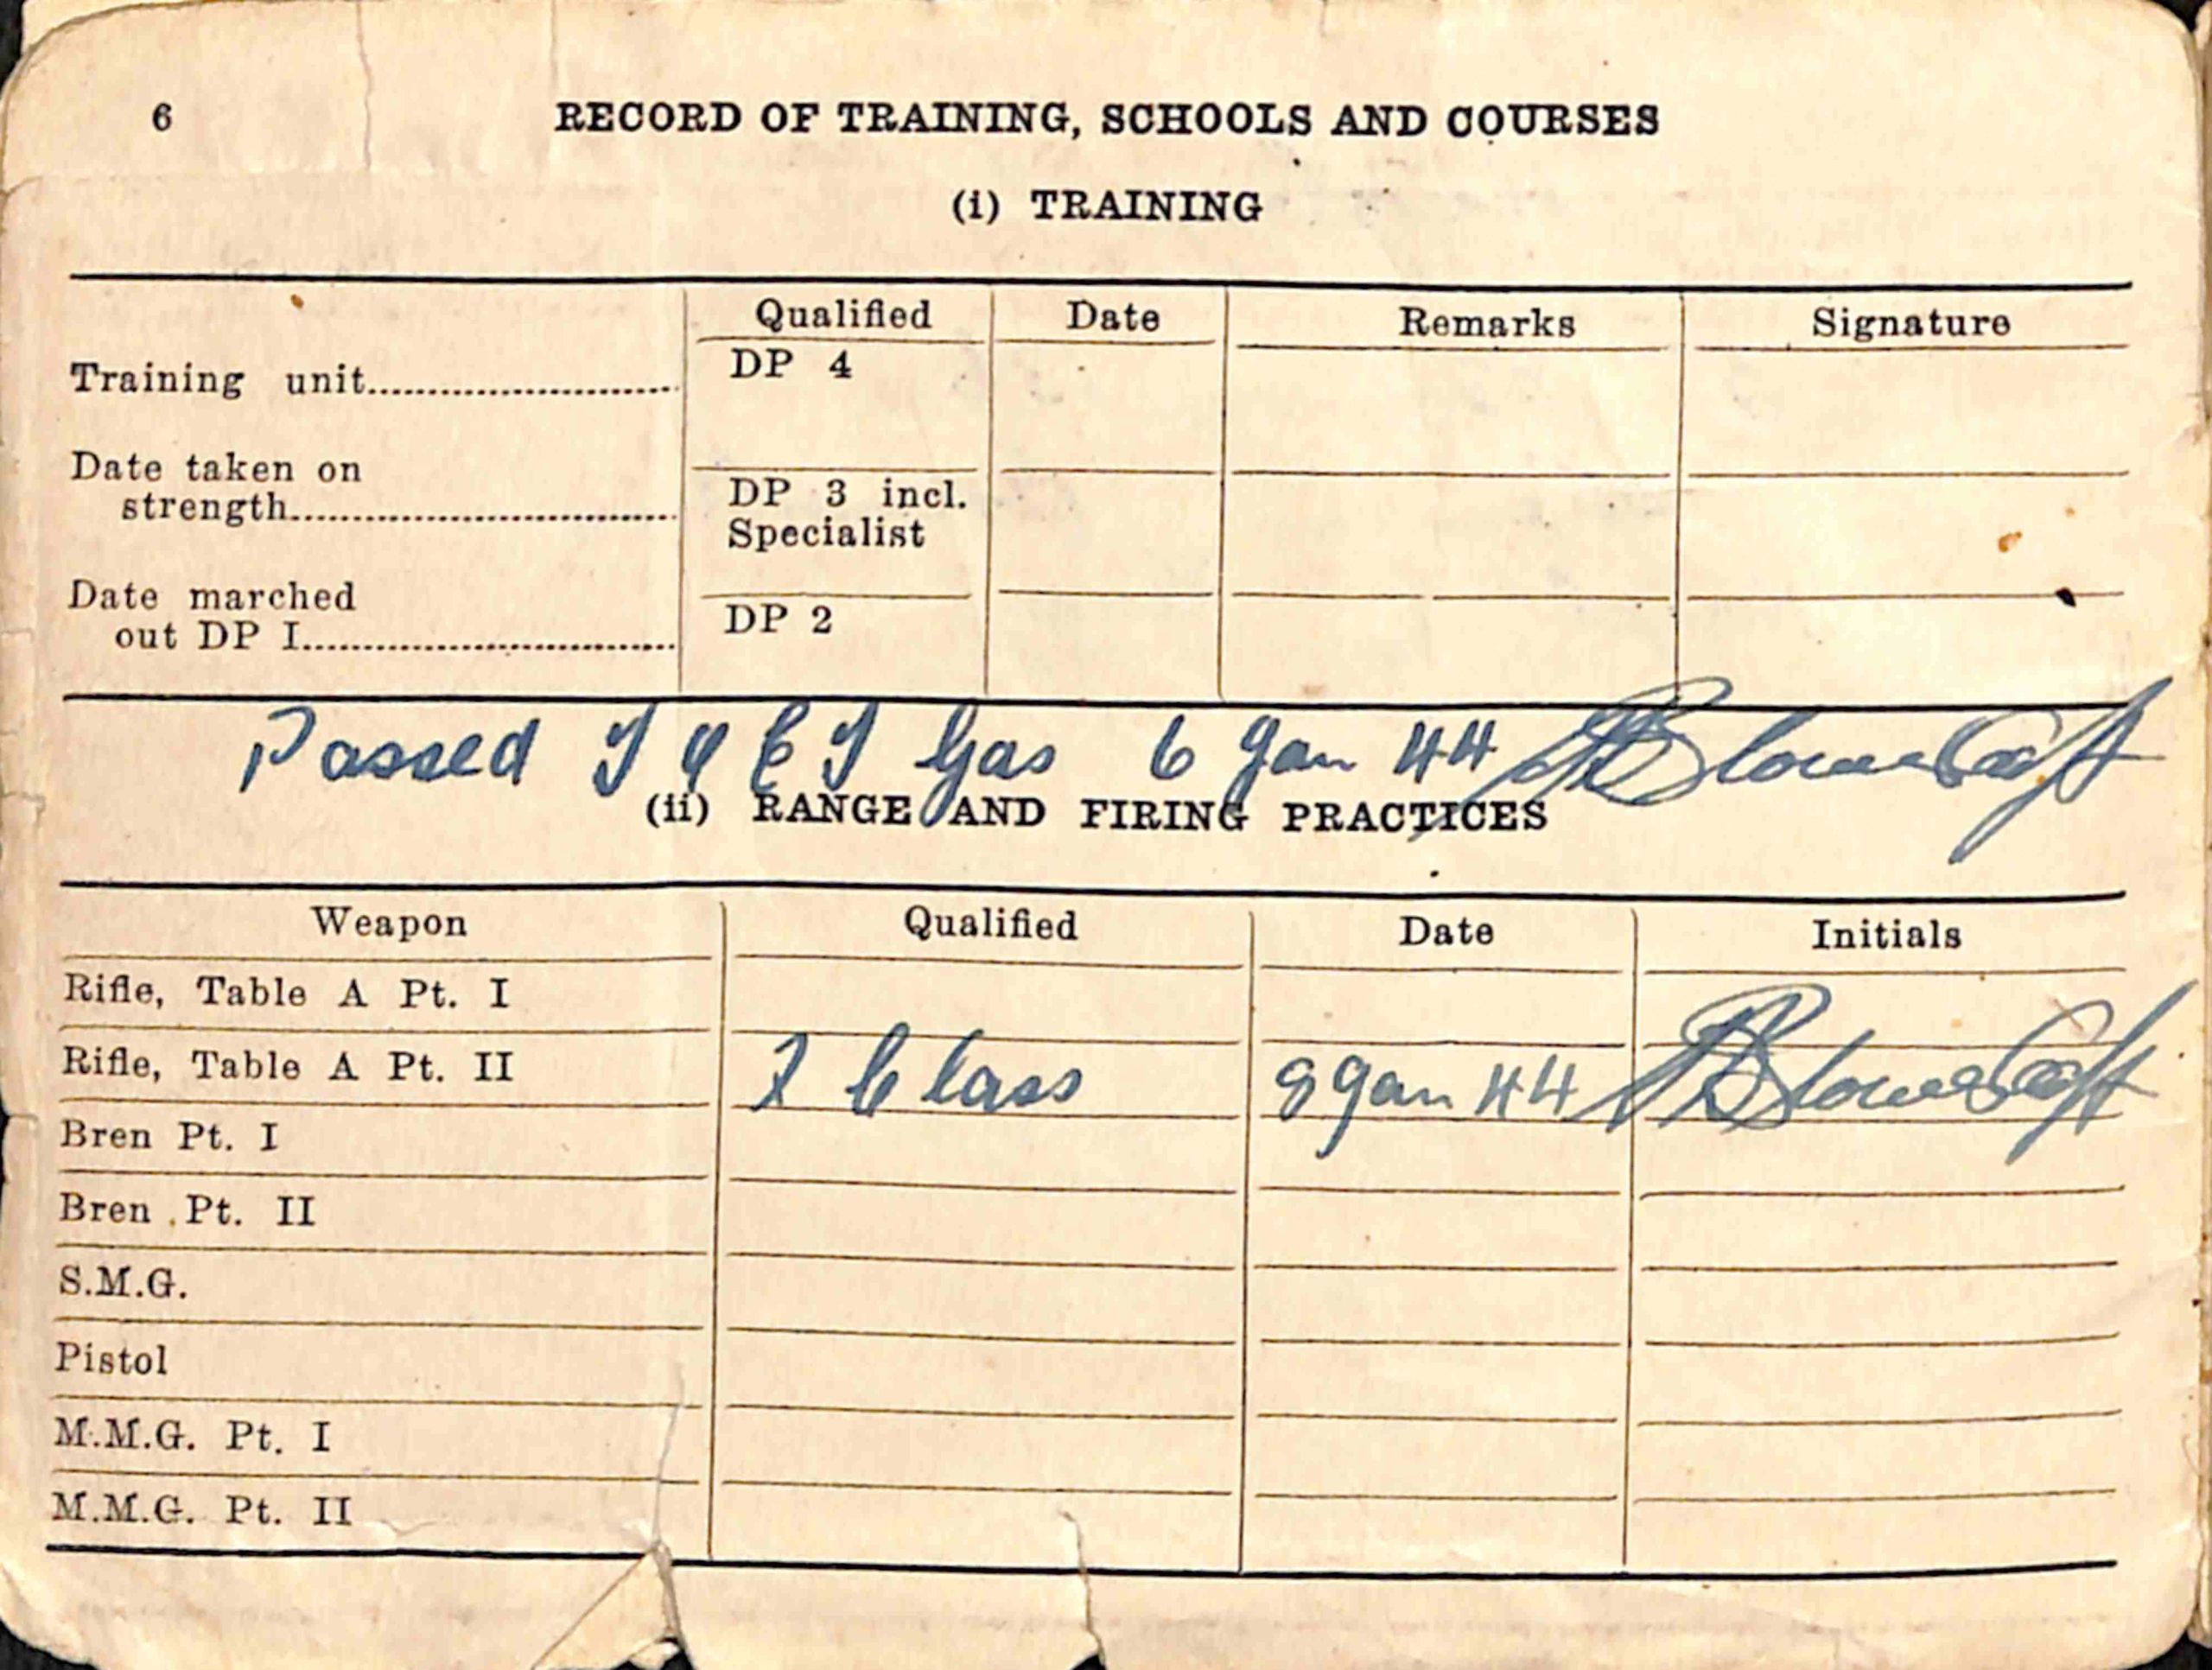 6 RECORD OF TRAINING, SCHOOLS AND COURSES
(i) TRAINING
Qualified Date Remarks Signature
Training unit
DP 4
Date taken on
strength
DP 3 incl.
Specialist
Date marched
out DP I
DP 2
Passed Gas 6 Jan 44
(ii) RANGE AND FIRING PRACTICES
Weapon Qualified Date Initials
Rifle, Table A Pt. I
Rifle, Table A Pt. II Class Jan 44
Bren Pt. I
Bren Pt. II
S.M.G.
Pistol
M.M.G. Pt. I
M.M.G. Pt. II